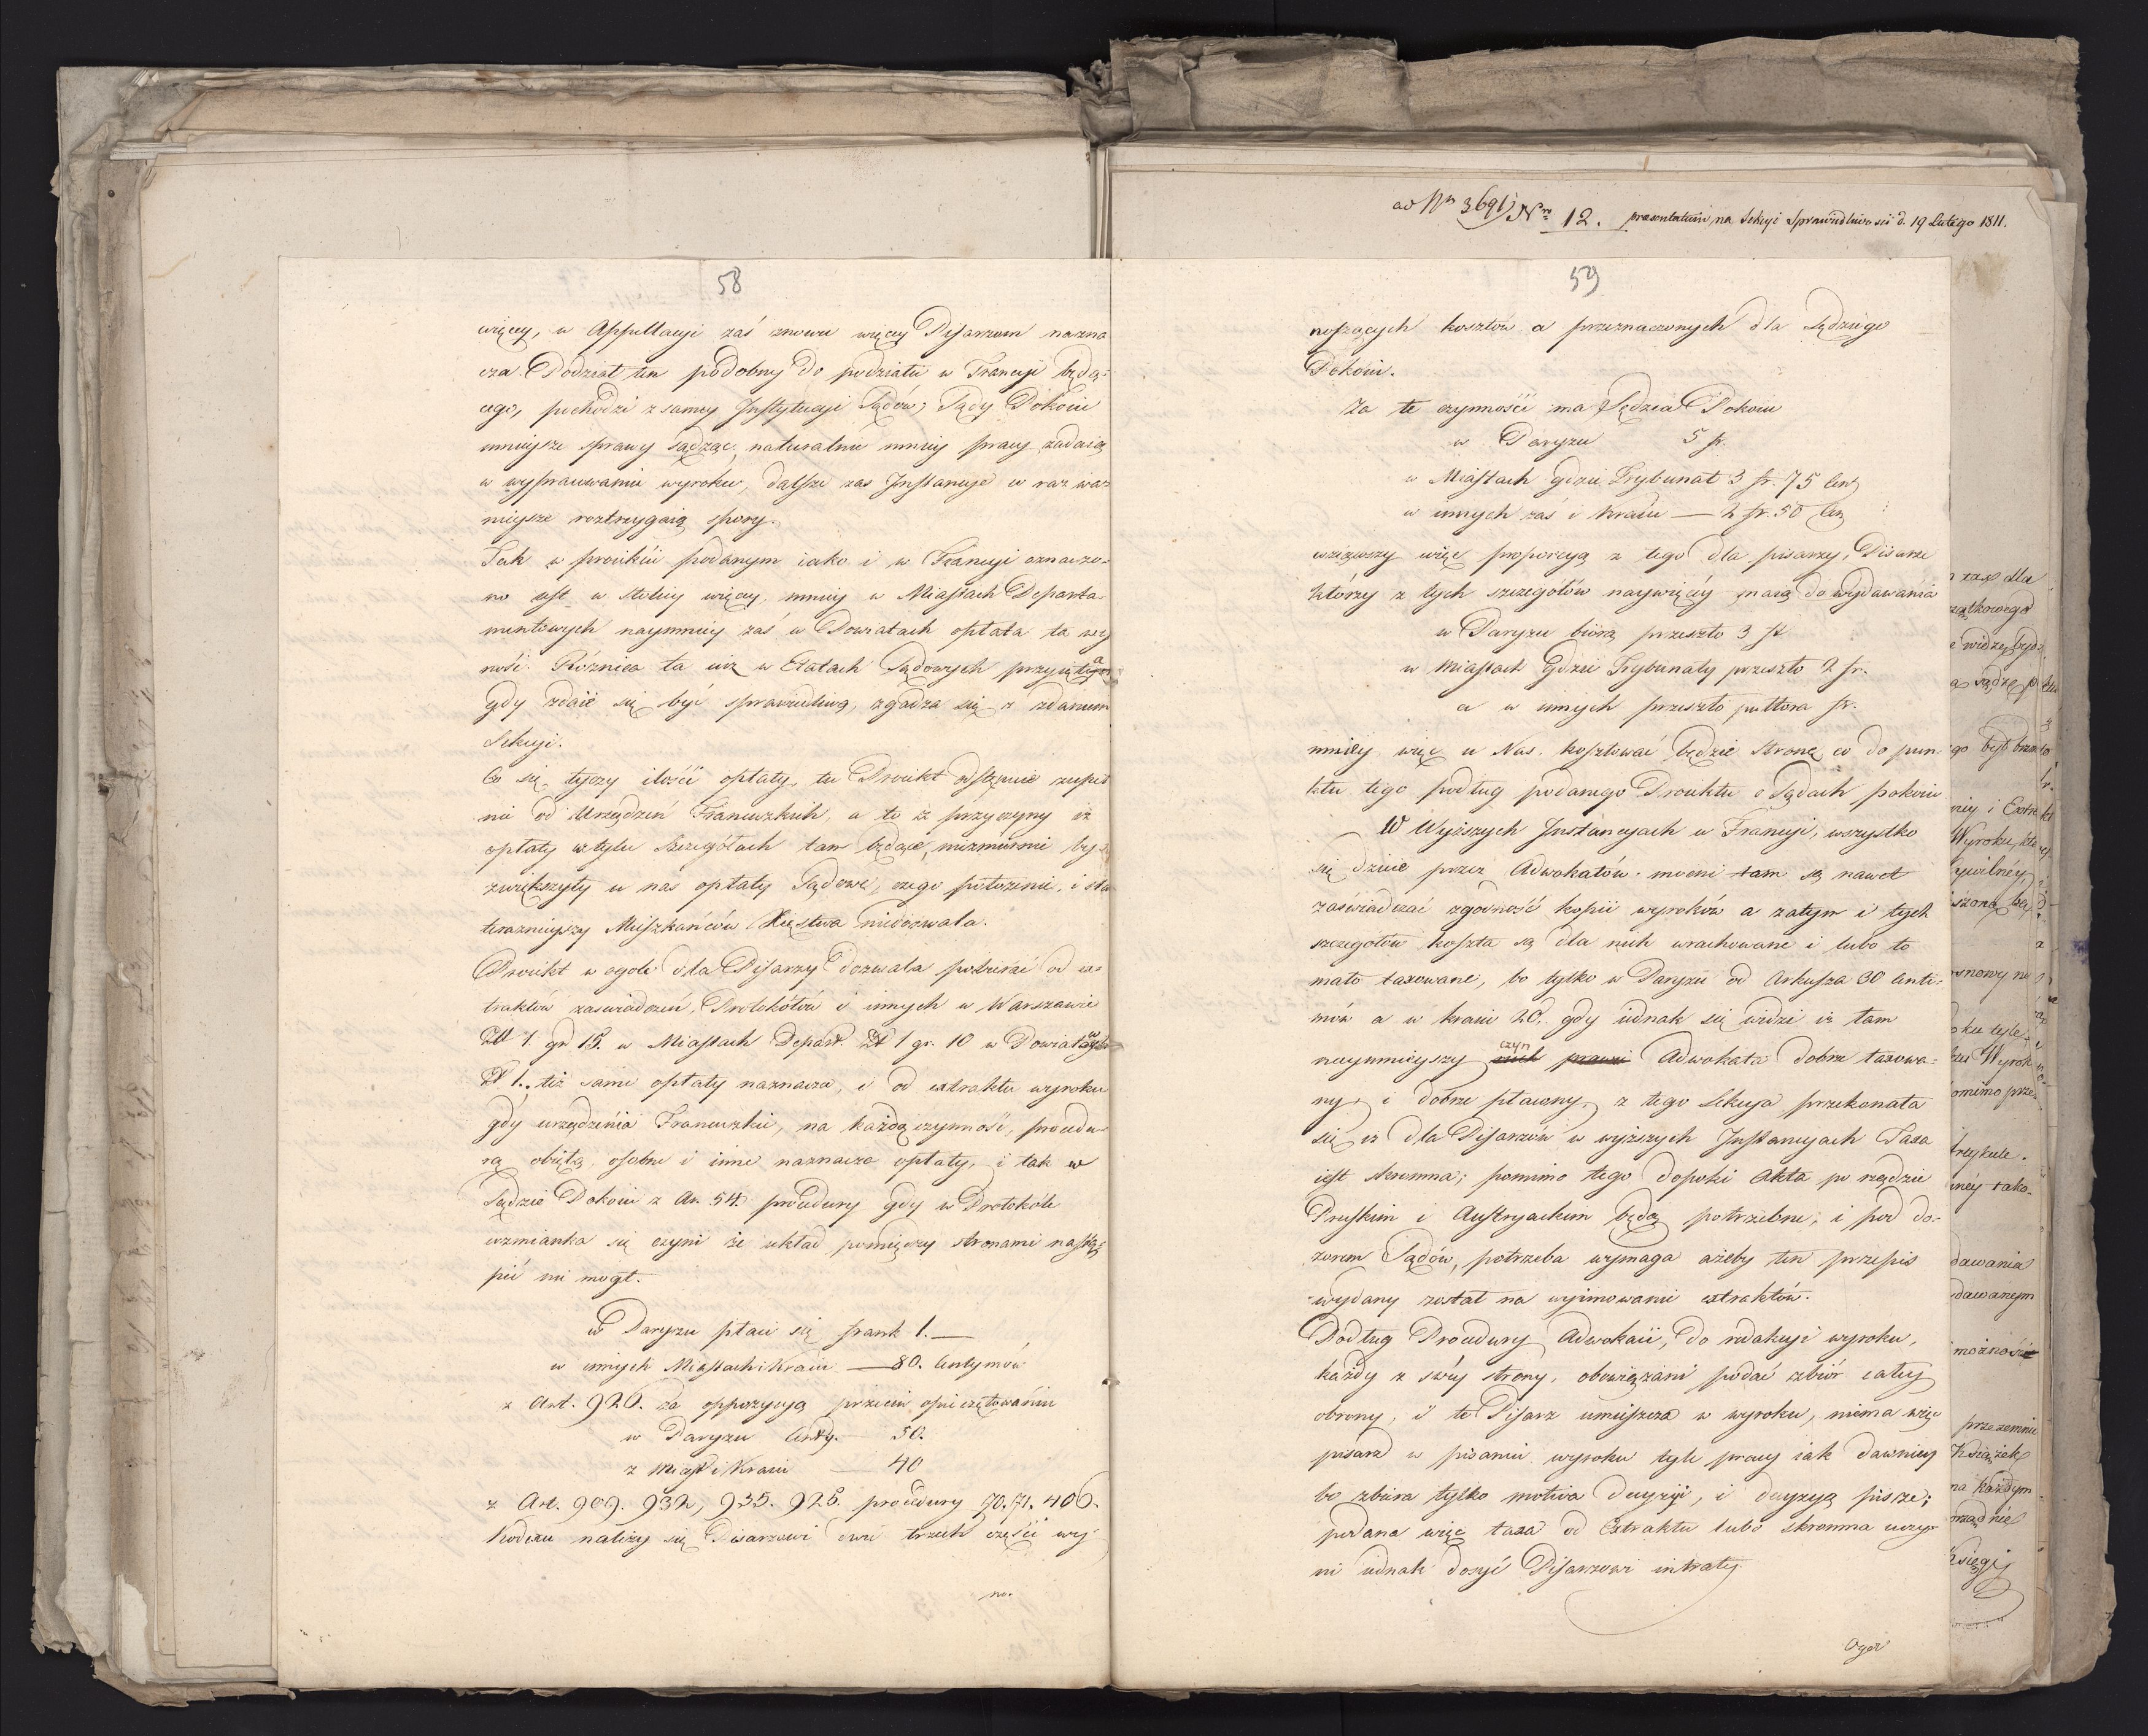 58
więcey, w Appellacyi zaś znowu więcey Pisarzom nazna
cza. Podział ten podobny do podziału w Francyi będą-
cego, pochodzi z samey Instytucyi Sądów, Sądy Pokoiu
mnieysze sprawy sądząc, naturalnie mniey pracy zadaią
w wyprawowaniu wyroku, dalsze zas Instancye co raz waż
nieysze roztrzygaią spory.
Tak w proiekcie podanym iako i w Francyi oznaczo-
no iest w stolicy więcey, mniey w Miastach Departa
mentowych naymniey zaś w Powiatach opłata ta wy
nosi. Róznica ta iuż w Etatach Sądowych przyięta
gdy zdaie się być sprawiedliwą, zgadza się z zdaniem
Sekcyi.
Co się tyczy ilości opłaty, tu Proiekt odstępuie zupeł
nie od Urządzeń Francuzkich, a to iż przyczyny iż
opłaty w tylu szczegółach tam będące, niezmiernie by
zwiększyły u nas opłaty Sądowe, czego położenie, i stan
teraznieyszy Mieszkańców Xięstwa niedozwala.
Proiekt w ogole dla Pisarzy dozwala pobierać od ex-
traktów zaswiadczeń, Protokółów i innych w Warszawie
Zł 1. gr 15. w Miastach Depart. Zł 1 gr. 10 w Powiatowych
Zł 1. też same opłaty naznacza, i od extraktu wyroku
gdy urządzenia Francuzkie, na każdą czynność, procedu-
rą obiętą, osobne i inne naznacza opłaty, i tak w
Sądzie Pokoiu z Ar. 54. procedury gdy w Protokóle
wzmianka się czyni że układ pomiędzy stronami nastą-
pić nie mogł.
w Paryzu płaci się frank 1. —
w innych Miastach i Kraiu — 80. Centymów
z Art. 926. za oppozycyą przeciw opieczętowaniu
w Paryzu Centy. 50.
z Miast i Kraiu — 40
z Art. 909. 932, 935. 925. procedury 70. 71. 406.
Kodexu należy się Pisarzowi dwie trzecie części wy
no.
ad Nr 3691) Nro 12. praesentatum na Sekcyi Sprawiedliwosci d. 19 Lutego 1811.
59
noszących kosztów a przeznaczonych dla Sędziego
Pokoiu.
Za te czynności ma Sędzia Pokoiu
w Paryzu 5 fr.
w Miastach gdzie Trybunał 3 fr. 75 Cen
w innych zaś i Kraiu — 2 fr. 50 Cen
wziąwszy więc proporcyą z tego dla pisarzy, Pisarze
którzy z tych szczegółów naywięcéy maią do wydawania
w Paryzu biorą przeszło 3 fr
w Miastach gdzie Trybunały przeszło 2 fr.
a w innych przeszło pułtora fr.
mniéy więc u Nas. kosztować będzie stronę co do pun-
ktu tego podług podanego Proiektu o Sądach pokoiu
W Wyższych Instancyach w Francyi, wszystko
się dzieie przez Adwokatów. mocni tam są nawet
zaświadczać zgodność kopii wyroków a zatym i tych
szczegółów koszta są dla nich wrachowane i lubo to
mało taxowane, bo tylko w Paryzu od Arkusza 30 Centi-
mów a w kraiu 20. gdy iednak się widzi iż tam
naymnieyszy czyn Adwokata dobrze taxowa-
ny, i dobrze płacony, z tego Sekcya przekonała
się iż dla Pisarzów w wyższych Instancyach Taxa
iest skromna; pomimo tego dopoki Akta po rządzie
Pruskim i Austryackim będą potrzebne, i pod do-
zorem Sądów, potrzeba wymaga ażeby ten przepis
wydany został na wyimowanie extraktów.
Podług Procedury Adwokaci, do redakcyi wyroku,
każdy z swéy strony, obowiązani podać zbiór całey
obrony, i te Pisarz umieszcza w wyroku, niema więc
pisarz w pisaniu wyroku tyle pracy iak dawniey
bo zbiera tylko motiva decyzyi, i decyzyą pisze;
podana więc taxa od Extraktu lubo skromna uczy-
ni iednak dosyć Pisarzowi intraty
Ogol